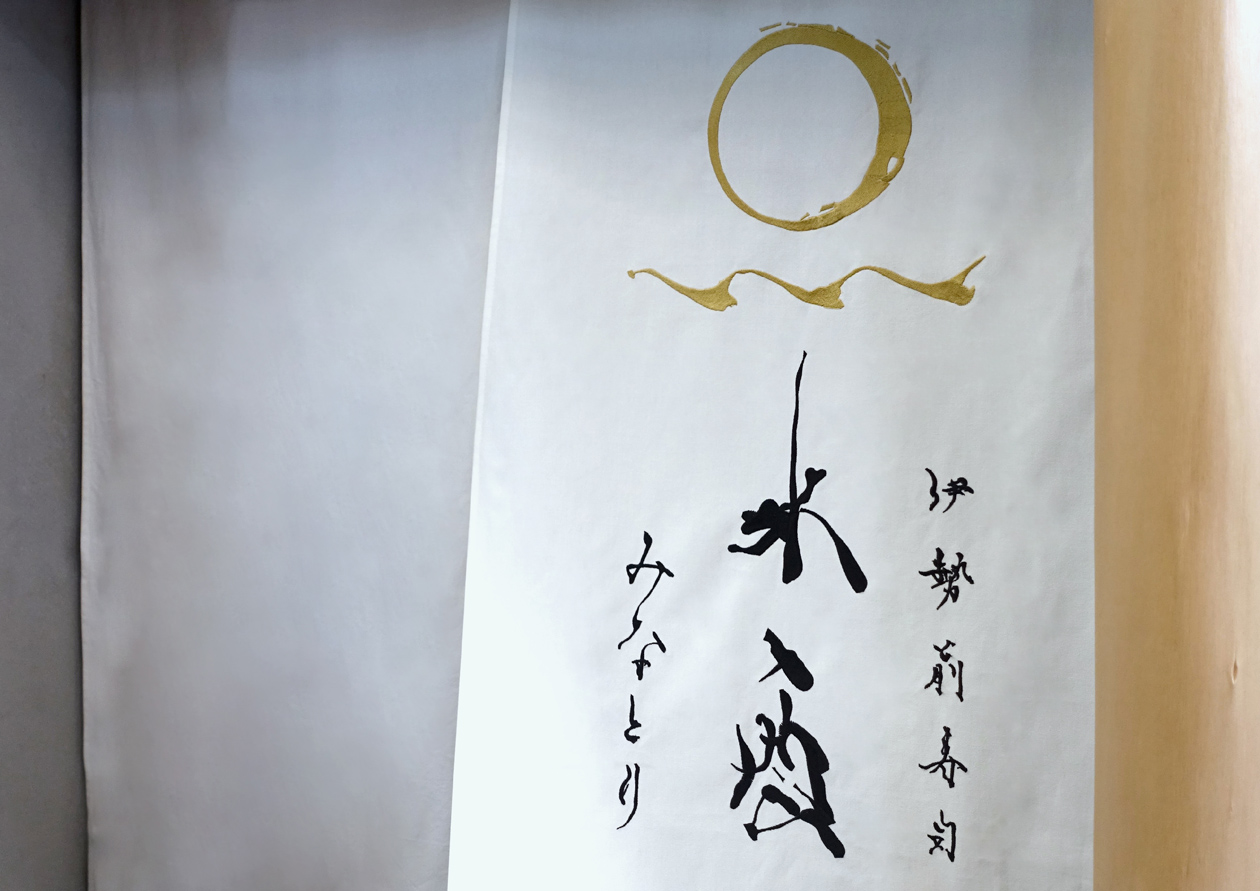 伊勢前寿司
みなとり